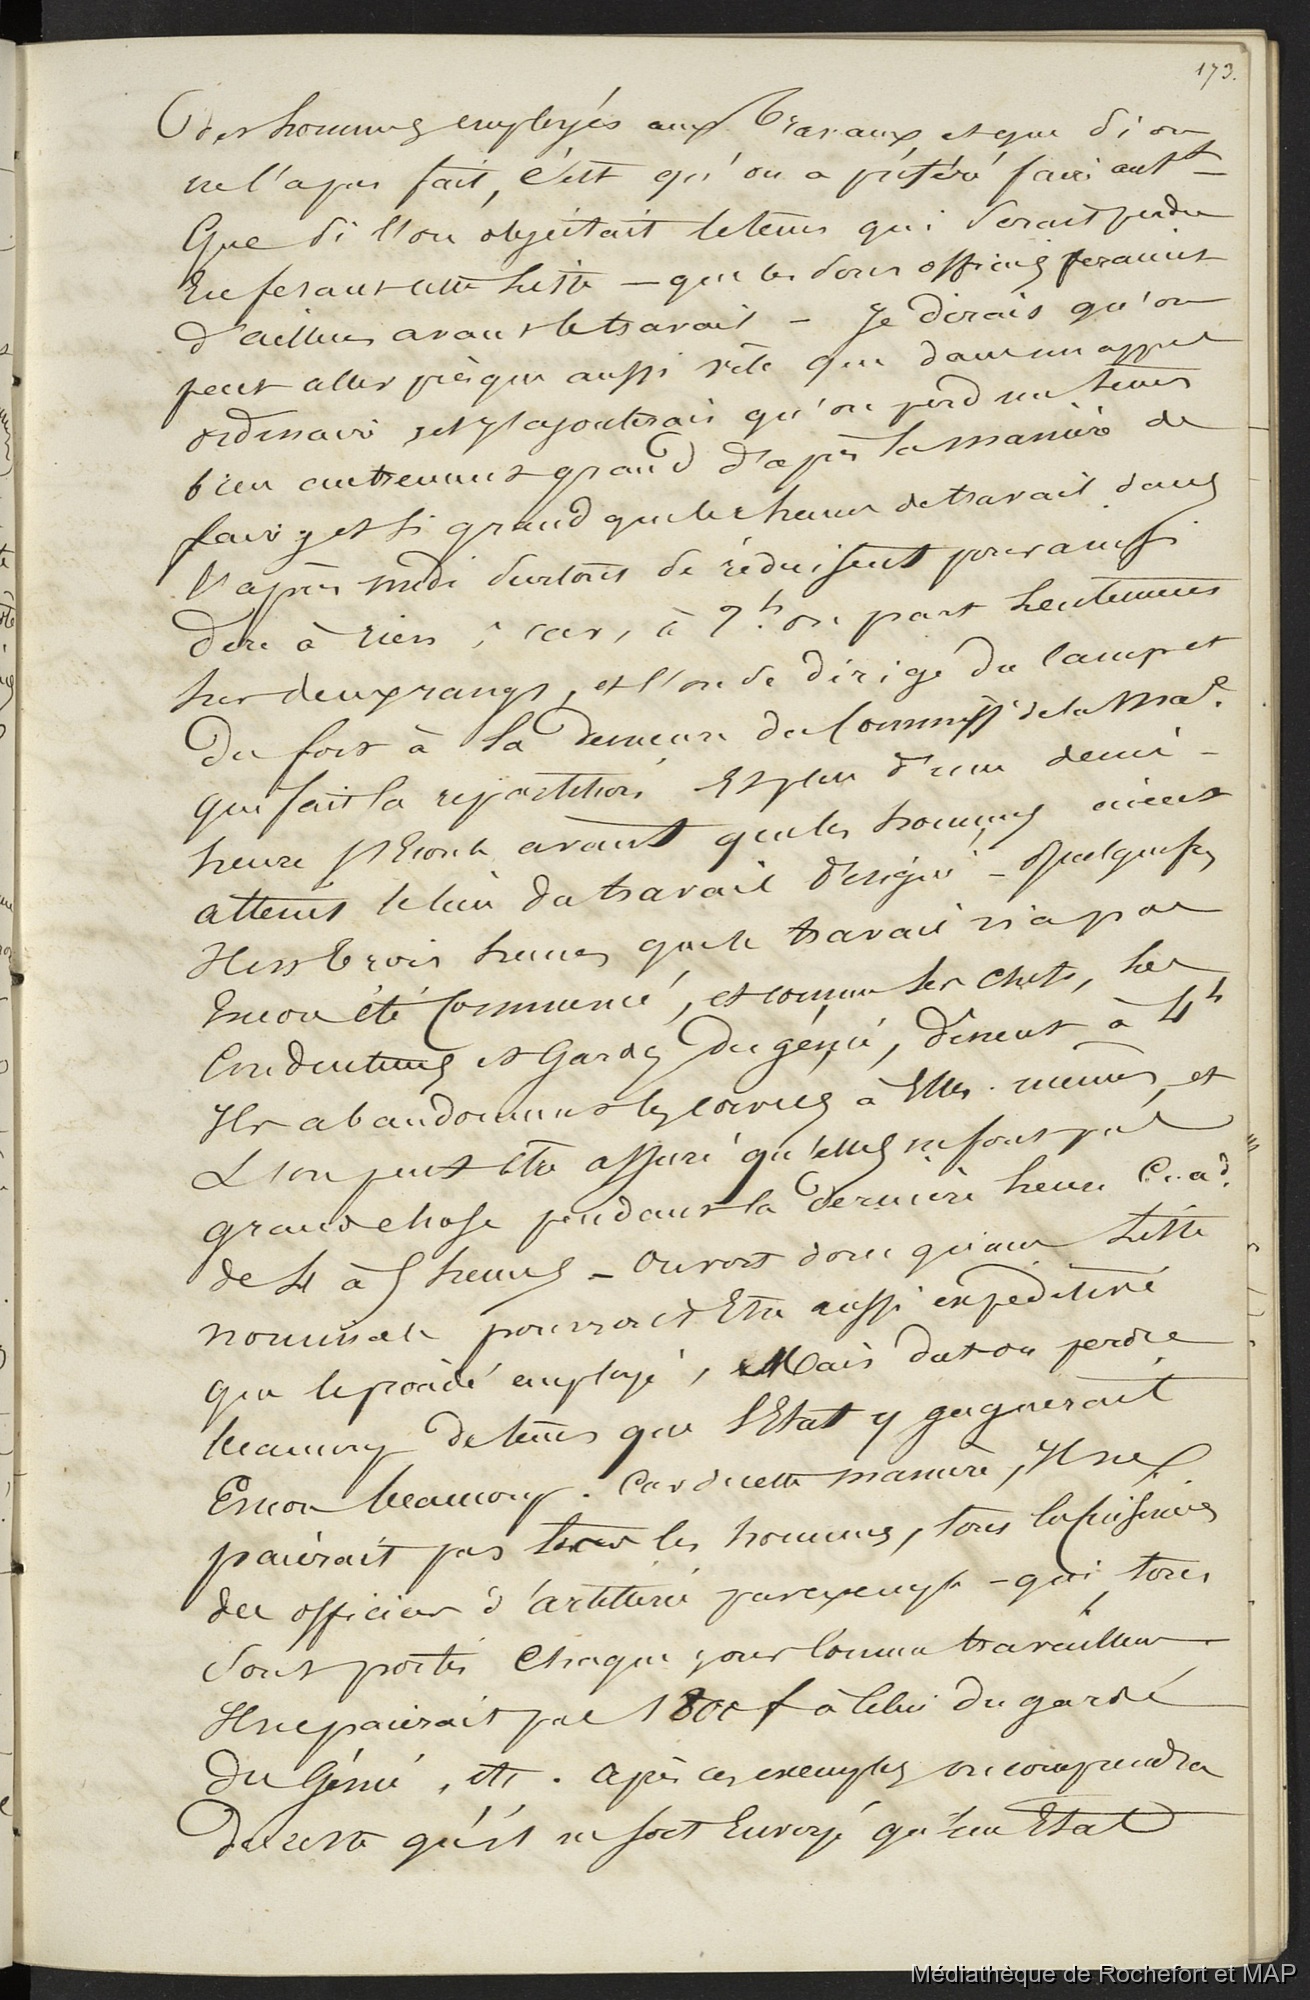 173.
des hommes employés aux travaux, et que si on
ne l'a pas fait, c'est qu'on a préféré faire autt
Que si l'on objectait le tems qui serait perdu
En fesant cette liste — que les sous officiers feraient
d'ailleurs avant le travail — Je dirais qu'on
peut aller presque aussi vite que dans un appel
ordinaire, et j'ajouterais qu'on perd un tems
bien autrement grand d'après la manière de
faire, et si grand que les heures de travail dans
l'après midi surtout se réduisent pour ainsi
dire à rien ; car, à 2h. on part lentement
sur deux rangs, et l'on se dirige du camp et
du fort à la demeure du Commiss. de la Mae.
qui fait la repartition. Et plus d'une demi-
heure s'écoule avant que les hommes aient
atteint le lieu du travail désigné — Quelquefs
Il est trois heures que le travail n'a pas
Encore été Commencé, et comme les chefs, les
Conducteurs et Gardes du génie, dinent à 4h
Ils abandonnent les corvées à Elles-mêmes, et
L'on peut être assuré qu'elles ne font pas
grand chose pendant la dernière heure C. a d.
de 4 à 5 heures — On voit donc qu'une liste
nominale pourrait Etre aussi expéditive
que le procédé employé, Mais dut on perdre
beaucoup de tems que l'Etat y gagnerait
Encore beaucoup. Car de cette manière, Il ne
paierait pas tous les hommes, tous les cuisiniers
des officiers d'artillerie par exemple — qui, tous
Sont portés Chaque jour comme travailleurs.
Il ne paierait pas 1800 f à celui du garde
du Génie, etc. Après ces exemples on comprendra
du reste qu'il ne soit Envoyé qu'un Etat
Médiathèque de Rochefort et MAP